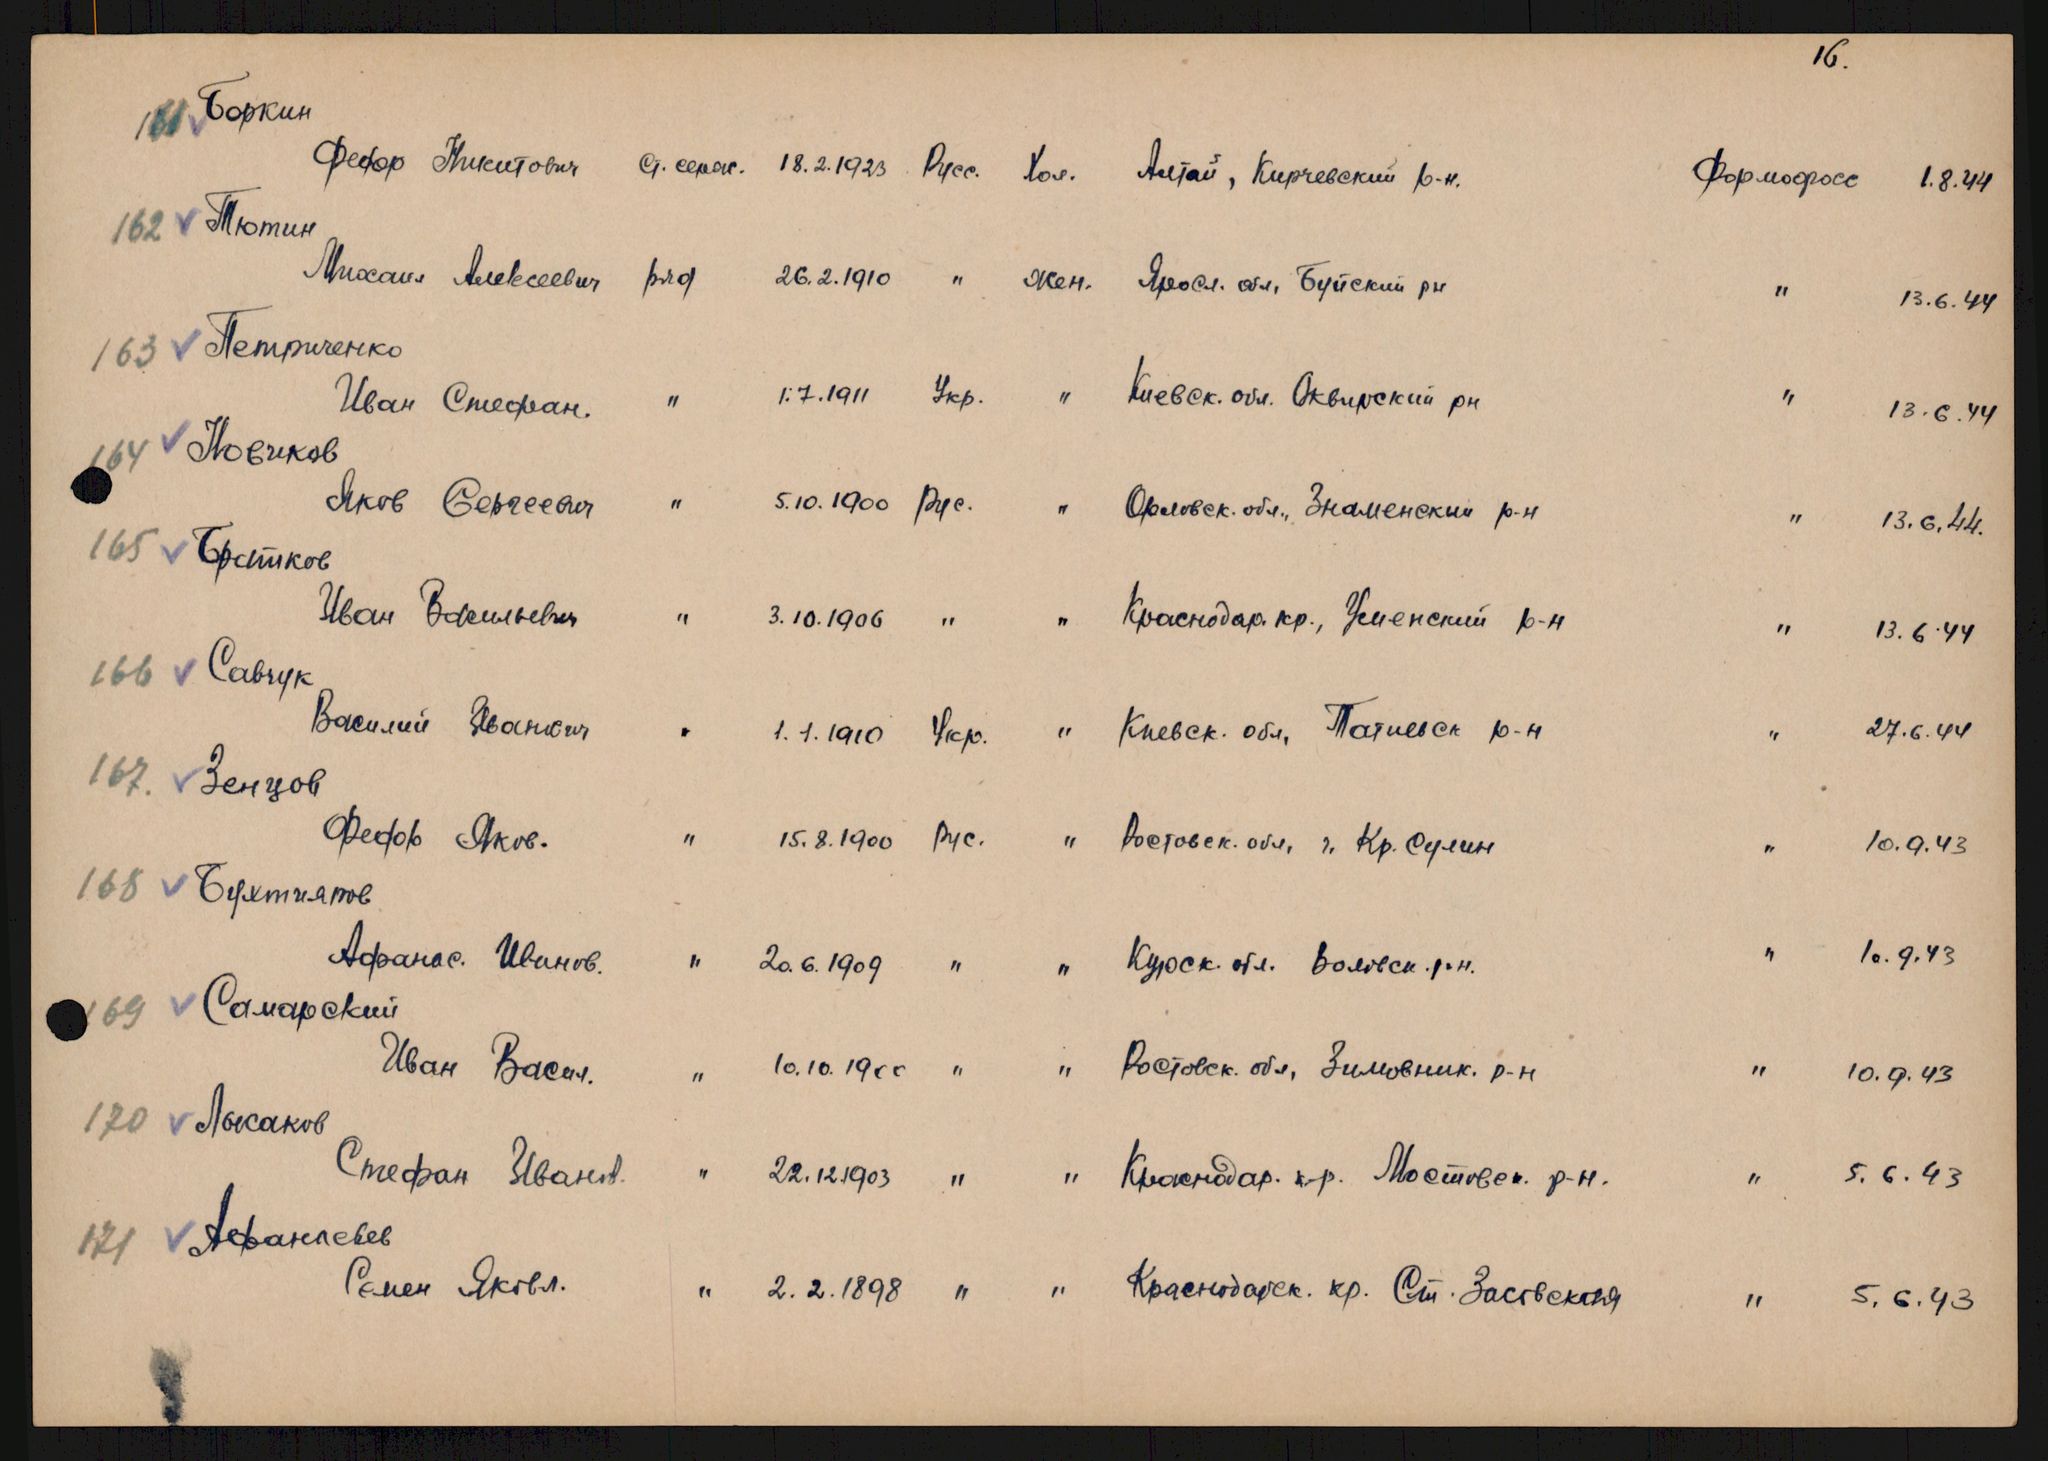 16.
161 Боркин
Федор Никитович Ст. серж. 18.2.1923 Русс. Хол. Алтай, Кирчевский р-н. Формофосс 1.8.44
162 Тютин
Михаил Алексеевич ряд 26.2.1910 " Жен. Яросл. обл, Буйский рн " 13.6.44
163 Петриченко
Иван Стефан. " 1.7.1911 Укр. " Киевск. обл. Сквирский рн " 13.6.44
164 Новиков
Яков Сергеевич " 5.10.1900 Рус. " Орловск. обл., Знаменский р-н " 13.6.44.
165 Братков
Иван Васильевич " 3.10.1906 " " Краснодар. кр., Успенский р-н " 13.6.44
166 Савчук
Василий Иванович " 1.1.1910 Укр. " Киевск. обл, Татиевск р-н " 27.6.44
167. Зенцов
Федор Яков. " 15.8.1900 Рус. " Ростовск. обл, г. Кр. Сулин " 10.9.43
168 Бухтияров
Афанас. Иванов. " 20.6.1909 " " Курск. обл. Воловск. р-н. " 10.9.43
169 Самарский
Иван Васил. " 10.10.1900 " " Ростовск. обл, Зимовник. р-н " 10.9.43
170 Лысаков
Стефан Иванов. " 22.12.1903 " " Краснодар. к-р. Мостовск. р-н. " 5.6.43
171 Афанасьев
Семен Яковл. " 2.2.1898 " " Краснодарск. кр. Ст. Засовская " 5.6.43